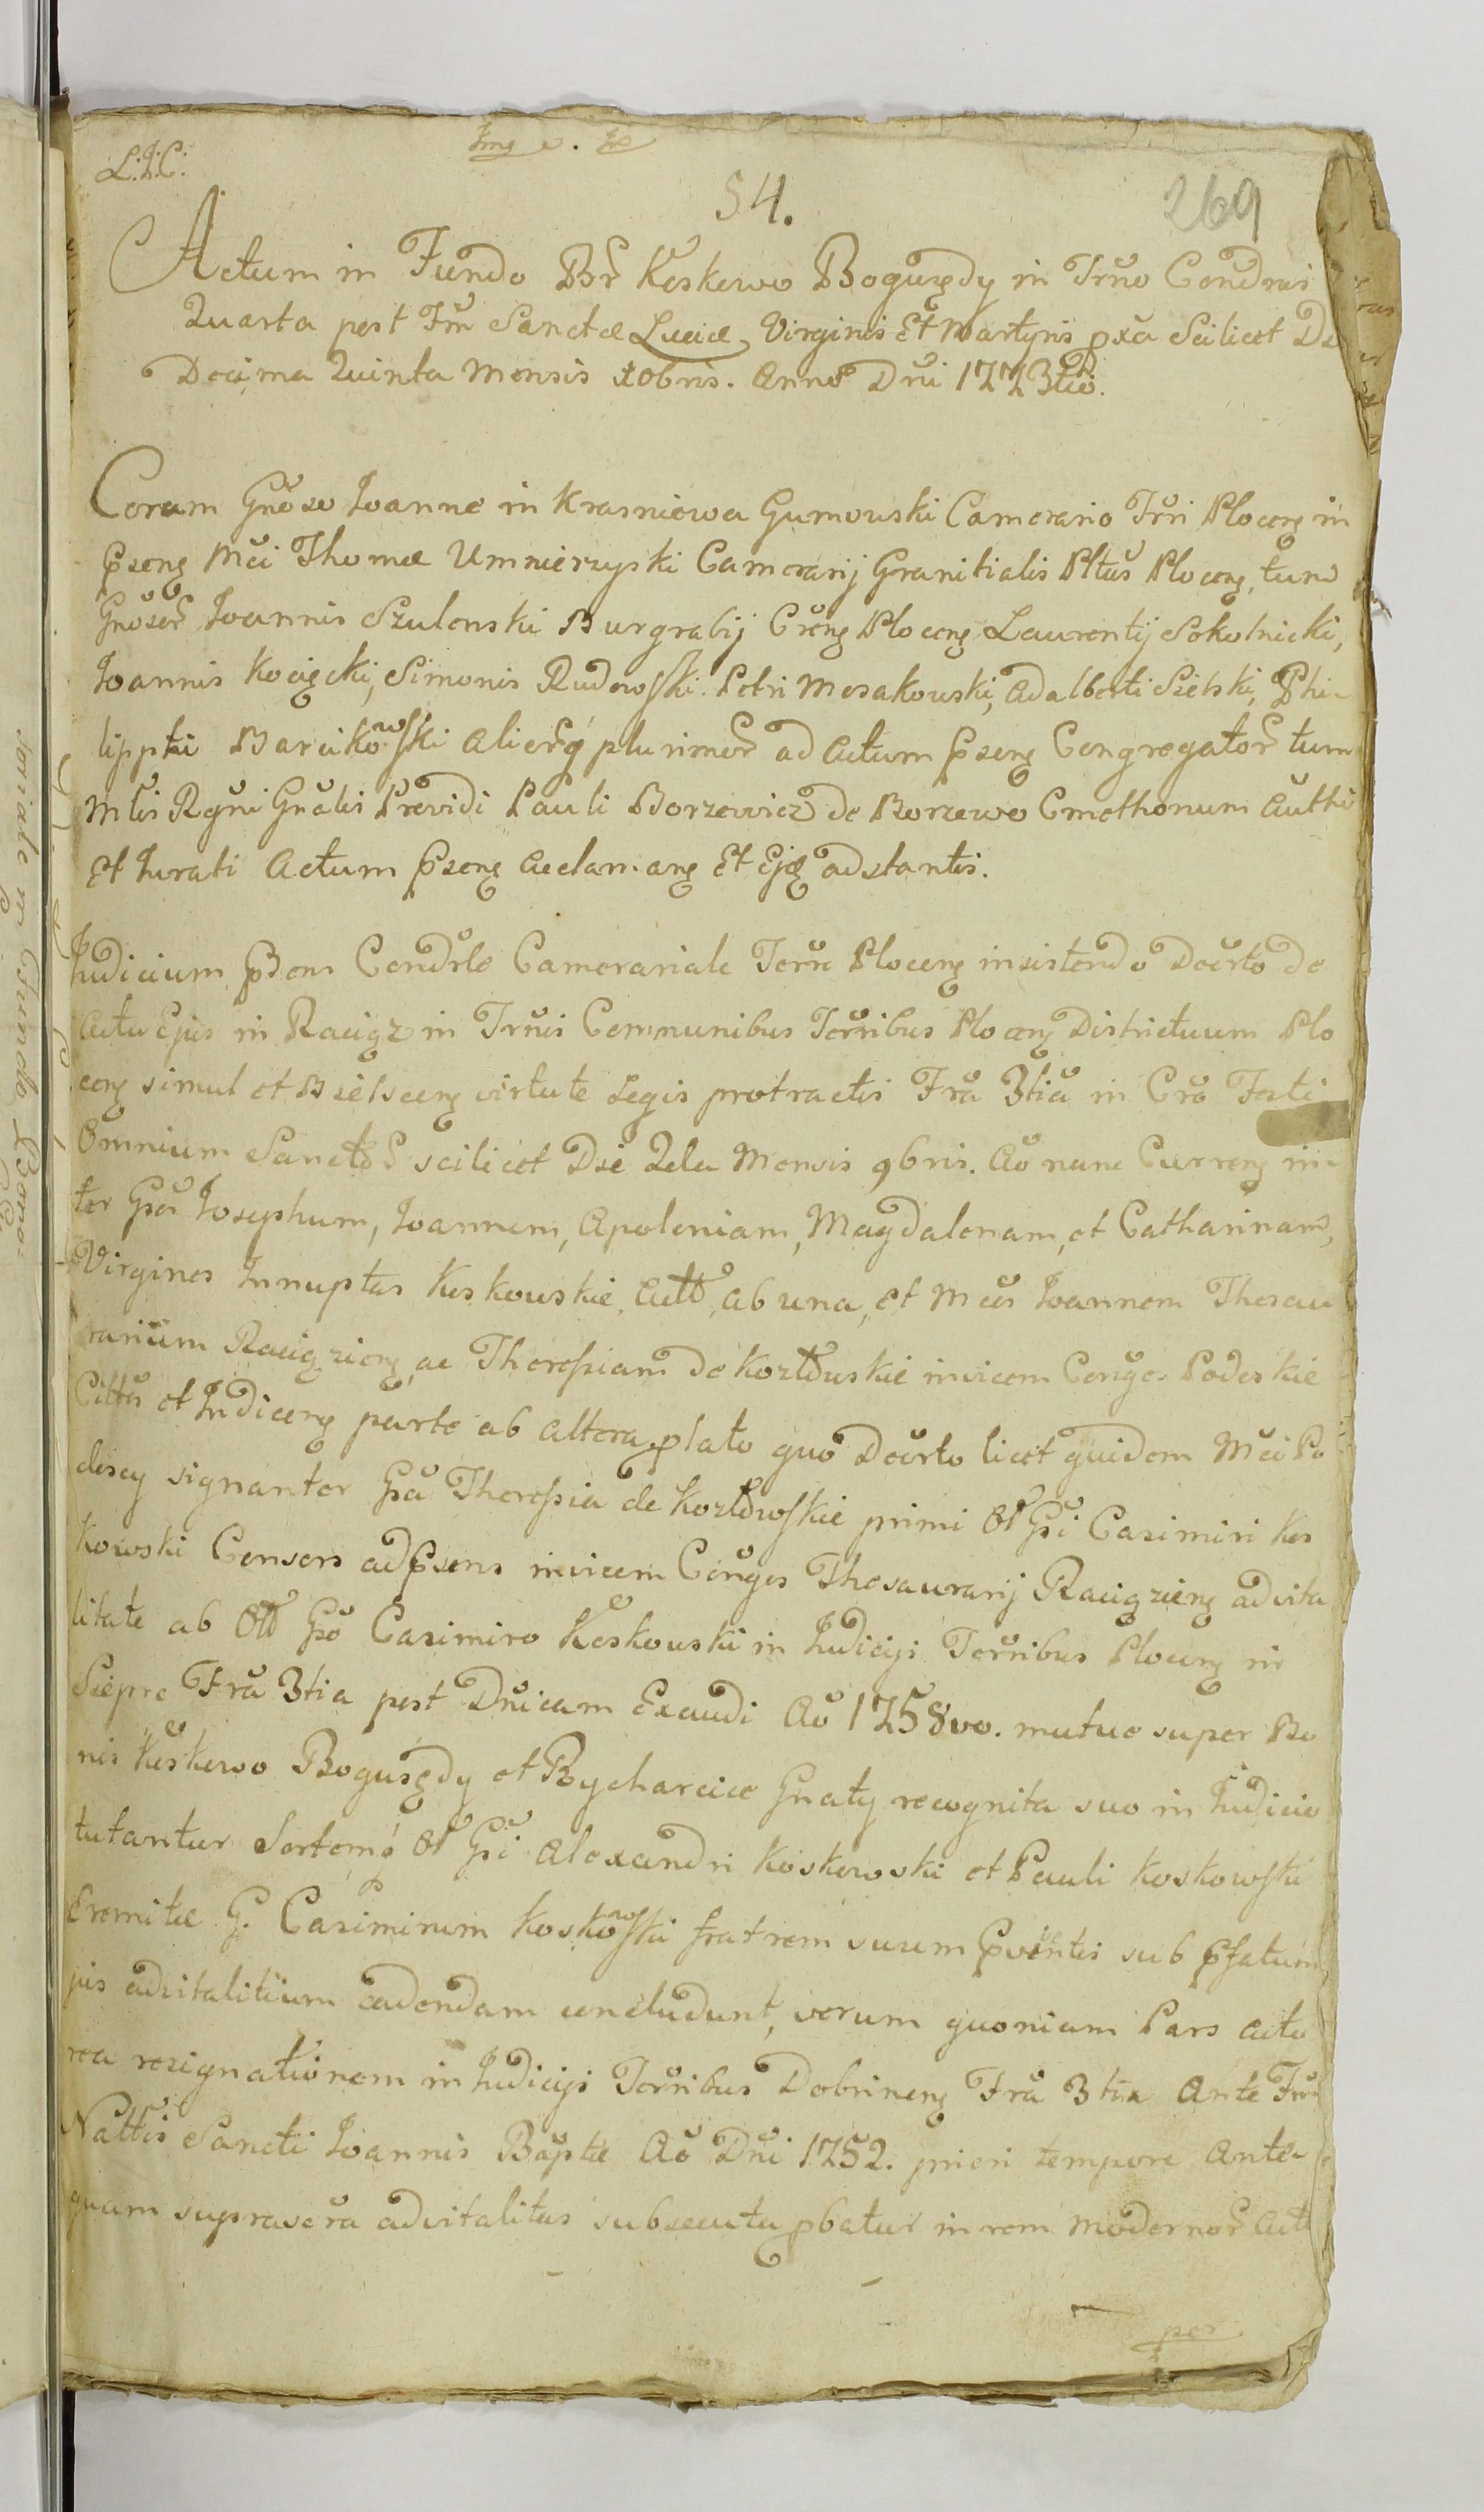 L.J.C:
54.
269
Actum in Fundo Bor̃ Koskowo Boguzędy in Trño Condñis
Quarta post Fm̃ Sanctæ Luciæ Virginis Et Martyris pxa Scilicet Di
Decima Quinta Mensis Xbris. Anno Dñi 1773tio.
Coram Gnõso Joanne in Krasniewa Gumowski Camerario Tr̃ri Ploceñ in
Pseñ Mči Thomæ Umnierzyski Camerarij Granitialis Pltũs Ploceñ, tum
Gnõsor̃ Joannis Szulenski Burgrabij Crẽñ Ploceñ Laurentij Sokolnicki,
Joannis Kocięcki, Simonis Rudowski Petri Mosakowski, Adalberti Sielski, Phi-
lippui Barcikowski Alior̃q́ plurimor̃ ad Actum Pseñ Congregator̃ tum
Mlis Rgñi Gnãlis Providi Pauli Borzewicz de Borzewo Cmethonum Auth
Et Jurati Actum Pseñ Acclamañ Et Ejdẽ adstantis.
Judicium Psens Condrle Camerariale Terræ Ploceñ insistendo Decrto de
Actu Ejus in Raciąz in Trñis Communibus Terribus Ploceñ Districtuum Plo
ceñ simul et Bielsceñ virtute Legis protractis Frã 3tiã in Crõ Festi
Omnium Sanctor̃ scilicet Die 2da Mensis 9bris. Aõ nunc Curreñ in
ter Gsõs Josephum, Joannem, Apoloniam, Magdalenam, et Catharinam,
Virgines Innuptas Koskowskie, Actõ, ab una, et Mcos Joannem Thesau
rarium Raciąziceñ ac Theresiam de Kozłowskie invicem Conges Podoskie
Cittõs et Indiceñ parte ab altera plato quo Decrto licet quidem Mci Po
doscy signanter Gsã Theresia de Kozłowskie primi Ol Gsi Casimiri Kos
kowski Consors adPsens invicem Conges Thesaurarij Raciąziceñ advita
litate ab Olĩ Gsõ Casimiro Koskowski in Judicijs Terribus Ploceñ in
Sieprc Frã 3tia post Dñicam Exaudi Aõ 1758vo. mutuo super Bo
nis Koskowo Boguzędy et Rycharcice Gnãty recognita suo in Judicio
tutantur Sortemq́ Ol Gsi Alexandri Koskowski et Pauli Koskowski
Eremitæ G. Casimirum Koskowski fratrem suum Pventis sub Pfatum
jus advitalitium cadendam concludunt, verum quoniam Pars Acto
rea resignationem in Judicijs Terribus Dobrineñ Frã 3tia Ante Fm̃
Nattis Sancti Joannis Baptæ Aõ Dñi 1752. priori tempore Ante-
quam suprascra advitalitas subsecuta pbatur in rem modernor̃ Actõ
per